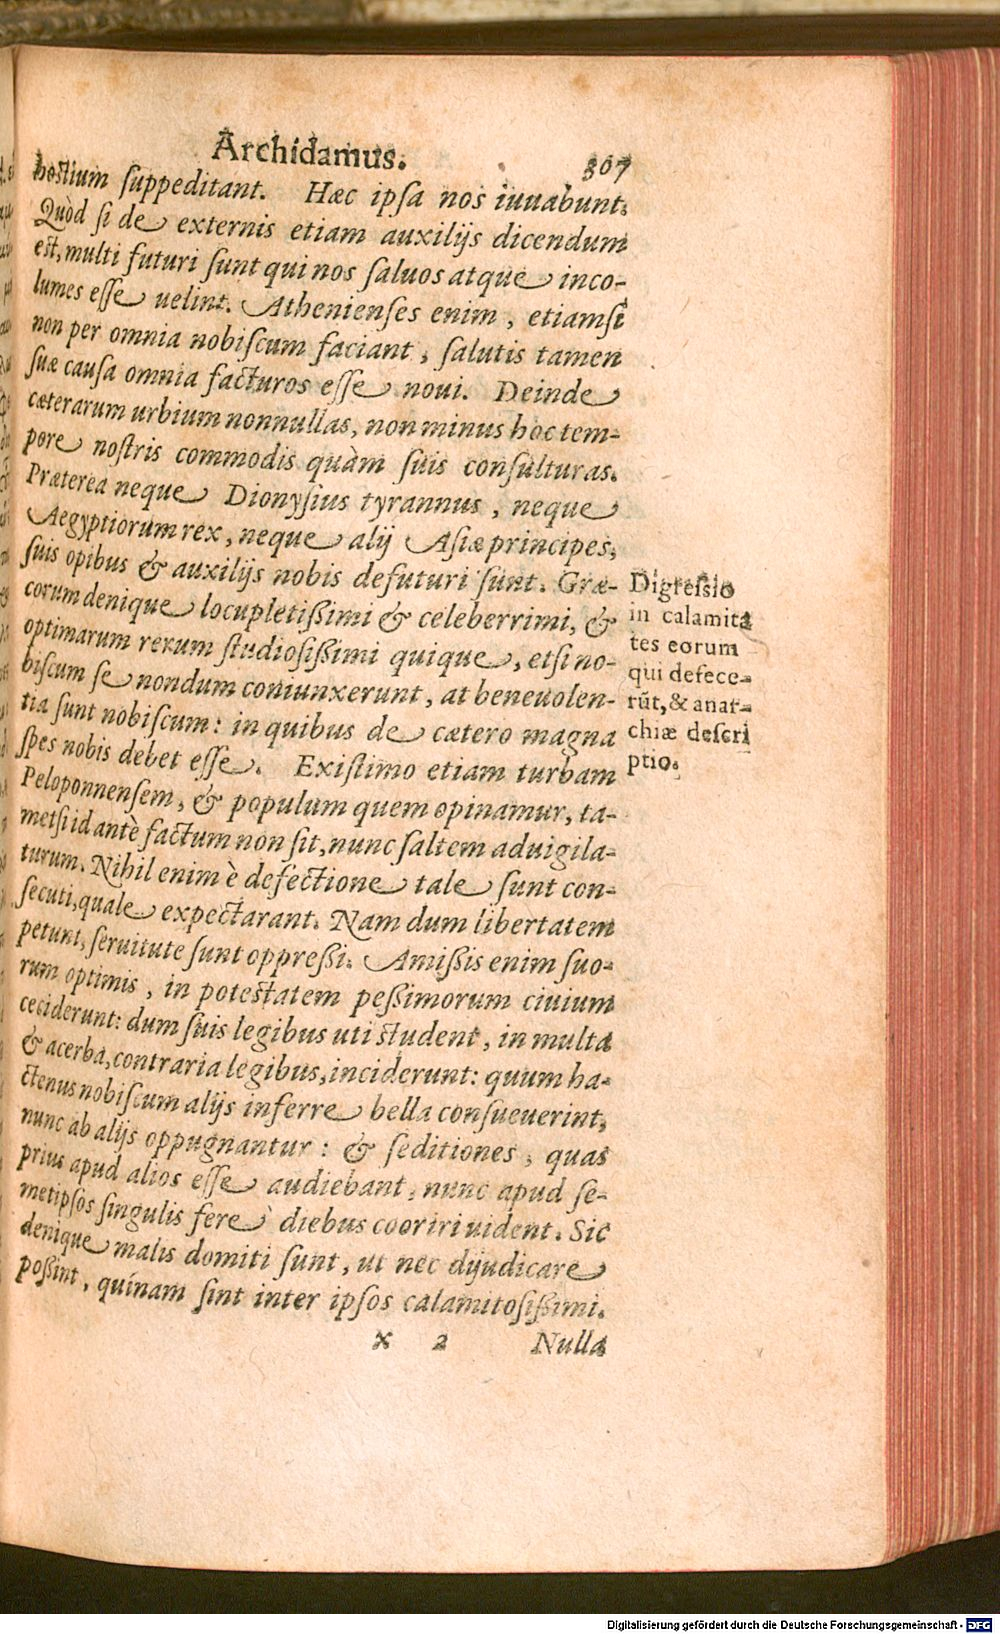 Archidamus. 307
hostium suppeditant. Hæc ipsa nos iuuabunt.
Quòd si de externis etiam auxilijs dicendum
est, multi futuri sunt qui nos saluos atque inco-
lumes esse uelint. Athenienses enim, etiamsi
non per omnia nobiscum faciant, salutis tamen
suæ causa omnia facturos esse noui. Deinde
cæterarum urbium nonnullas, non minus hoc tem-
pore nostris commodis quàm suis consulturas.
Præterea neque Dionysius tyrannus, neque
Aegyptiorum rex, neque alij Asiæ principes,
suis opibus & auxilijs nobis defuturi sunt. Græ-
corum denique locupletißimi & celeberrimi, &
optimarum rerum studiosißimi quique, etsi no-
biscum se nondum coniunxerunt, at beneuolen-
tia sunt nobiscum: in quibus de cætero magna
spes nobis debet esse. Existimo etiam turbam
Peloponnensem, & populum quem opinamur, ta-
metsi id antè factum non sit, nunc saltem aduigila-
turum. Nihil enim è defectione tale sunt con-
secuti, quale expectarant. Nam dum libertatem
petunt, seruitute sunt oppreßi. Amißis enim suo-
rum optimis, in potestatem peßimorum ciuium
ceciderunt: dum suis legibus uti student, in multa
& acerba, contraria legibus, inciderunt: quum ha-
ctenus nobiscum alijs inferre bella consueuerint,
nunc ab alijs oppugnantur: & seditiones, quas
prius apud alios esse audiebant, nunc apud se-
metipsos singulis ferè diebus cooriri uident. Sic
denique malis domiti sunt, ut nec dijudicare
poßint, quínam sint inter ipsos calamitosißimi.
x 2 Nulla
Digreſsio
in calamita
tes eorum
qui defece-
rūt, & anar-
chiæ descri
ptio.
Digitalisierung gefördert durch die Deutsche Forschungsgemeinschaft - DFG